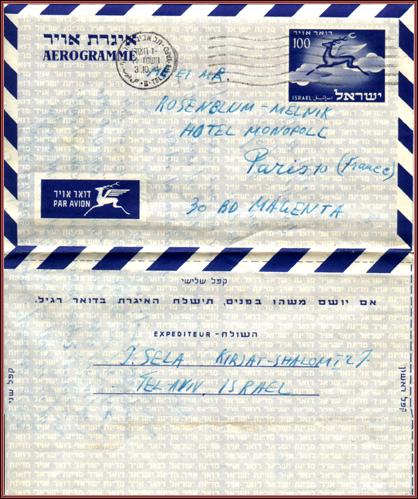 איגרת אויר
AEROGRAMME
דואר אויר
100
ISRAEL
ישראל
MR.
ROSENBLUM-MELNIK
HOTEL MONOPOLL
Paris (France)
30 BD MAGENTA
דואר אויר
PAR AVION
קפל שלישי
אם יושם משהו בפנים, תישלח האיגרת בדואר רגיל.
EXPEDITEUR - השולח
J. SELA KIRJAT-SHALOM
TEL AVIV, ISRAEL
קפל שני
קפל ראשון